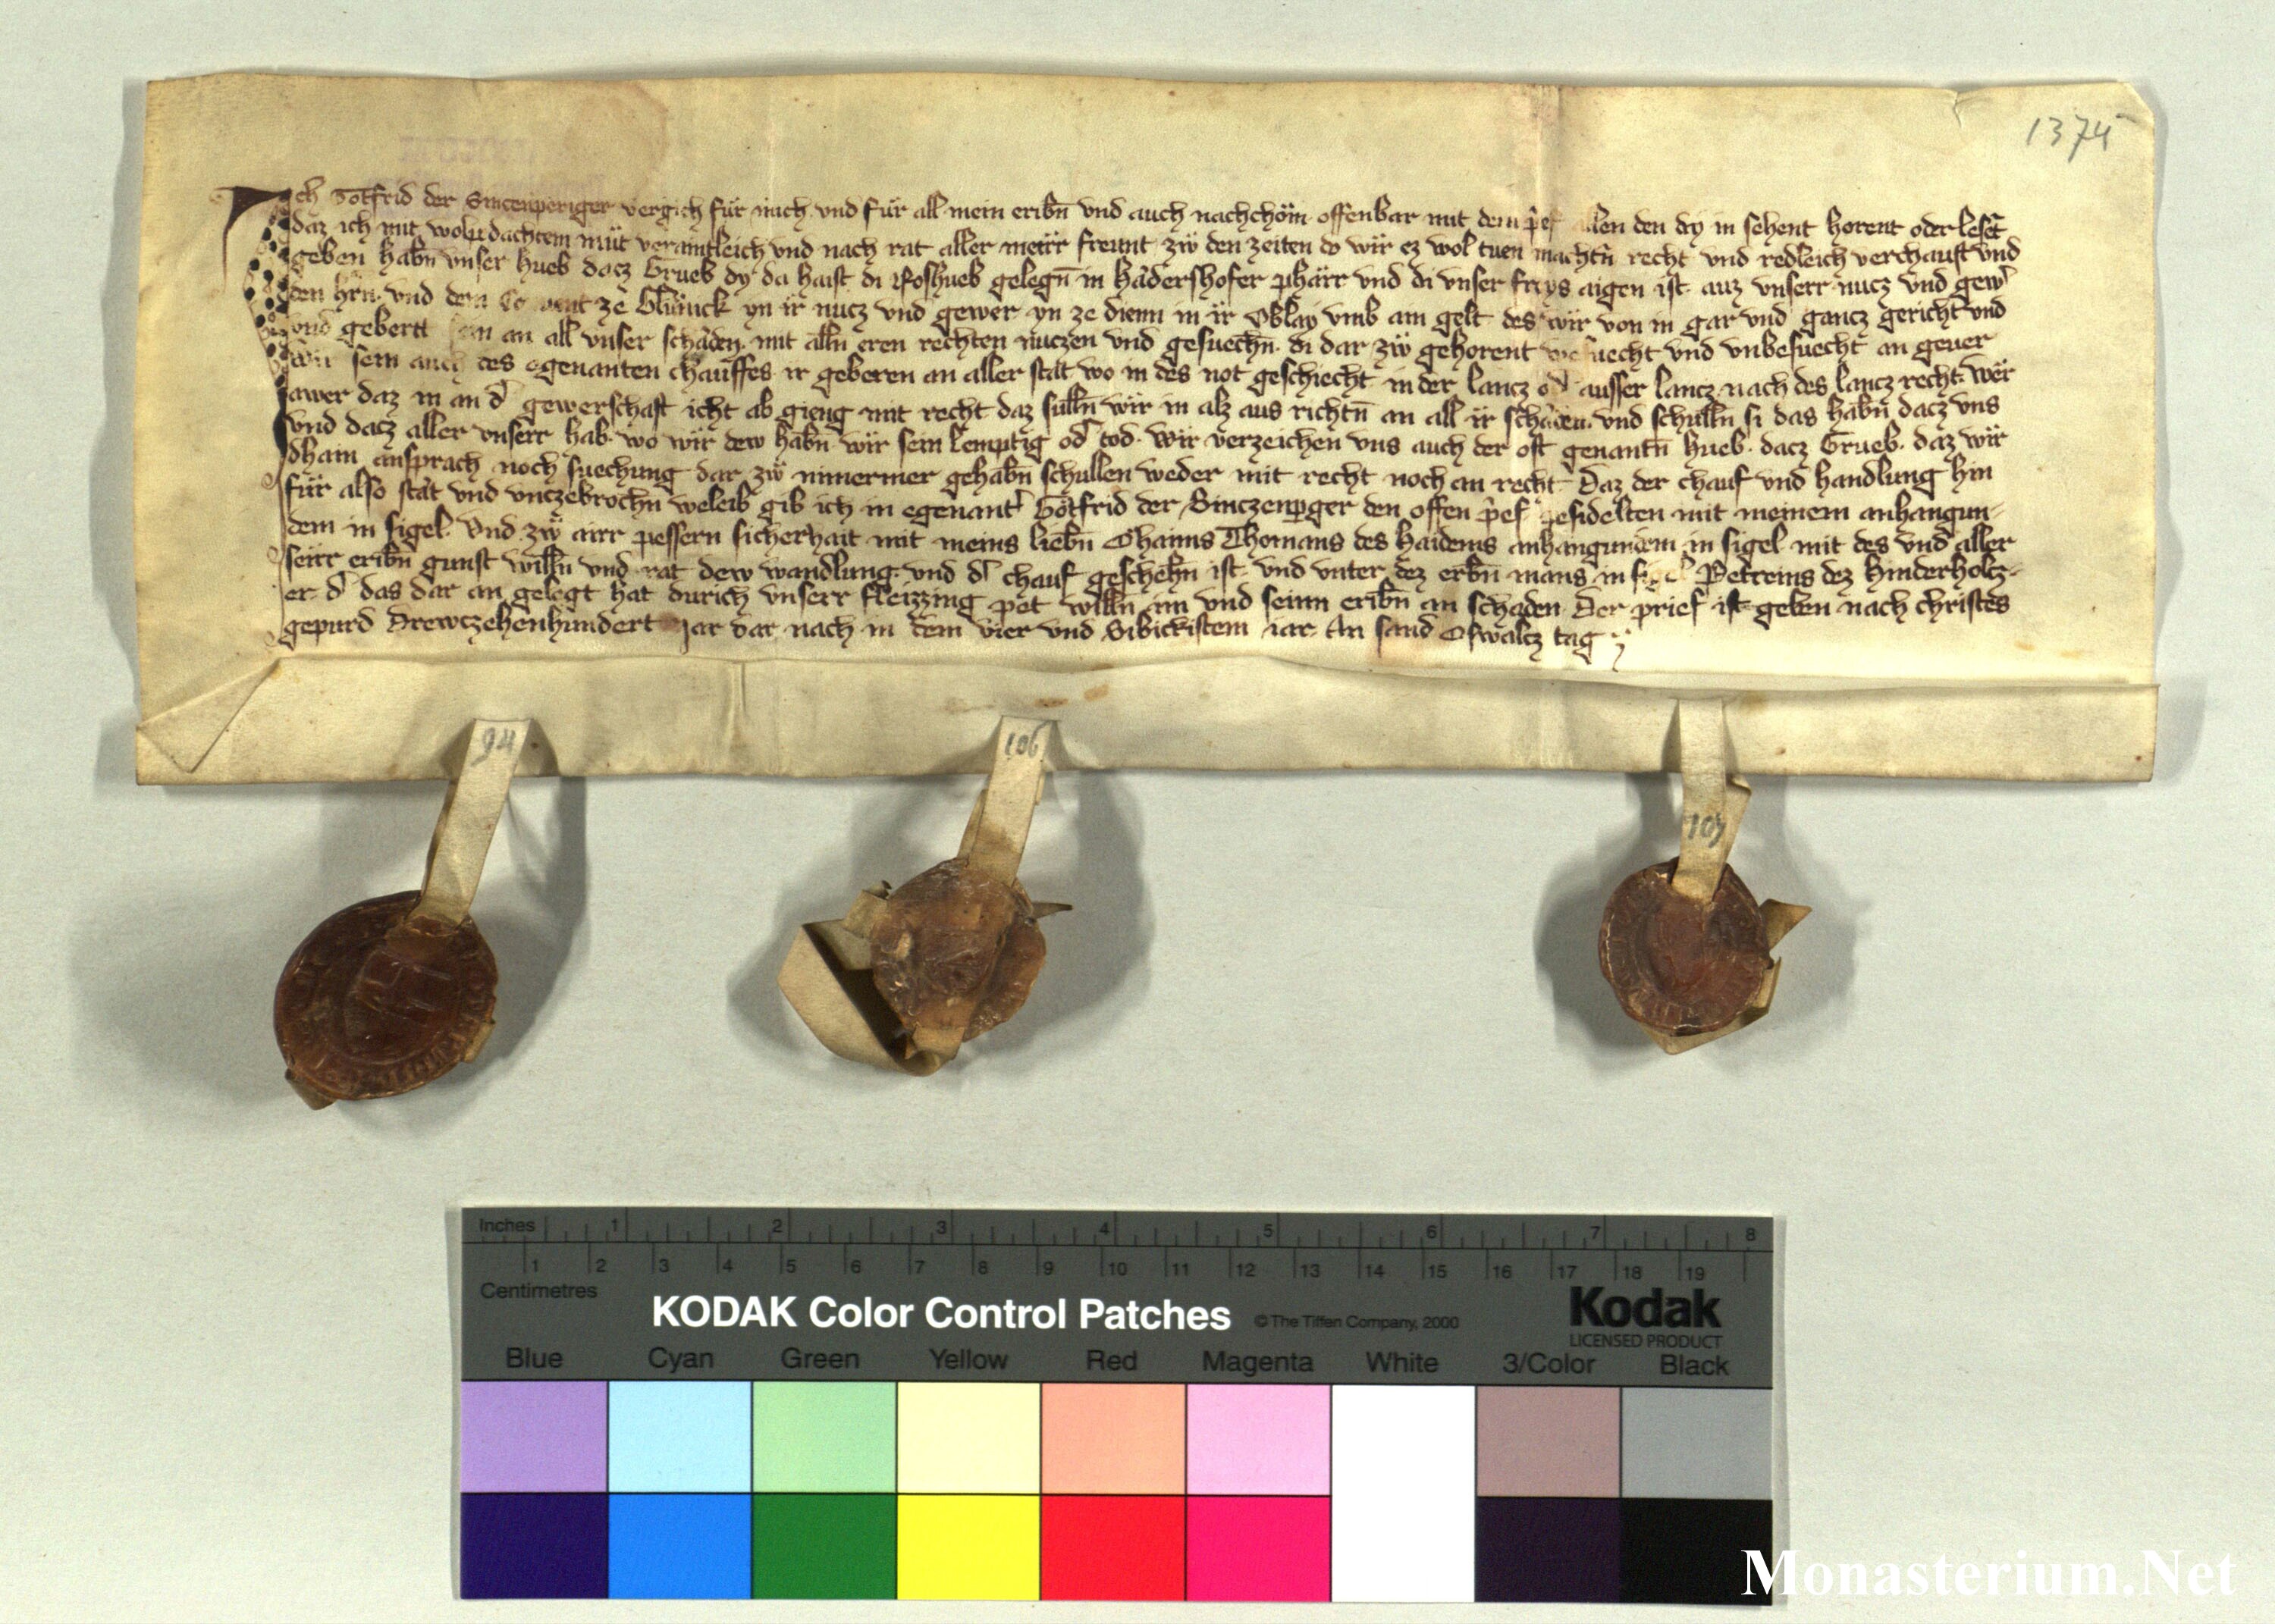 1374
Ich Gotfrid der Sinczenperiger vergich für mich vnd für all mein eribn̄ vnd auch nachchöm offenbar mit dem p̂ef allen den dy in sehent horent oder lesēt
daz ich mit wolpedachtem müt veraintleich vnd nach rat aller meïrr freunt zw̏ den zeiten do wïr ez wol tuen machtn̄ recht vnd redleich verchauft vnd
geben habn̄ vnser hueb dacz Grueb dy da haist di Roshueb gelegn̄ in hádershofer phärr vnd di vnser freys aigen ist auz vnserr nucz vnd gew̄
den hrn̄ vnd dem Co vent ze Glünick yn ir nucz vnd gewer yn ze dienn in ïr Oblay vmb ain gelt des wïr von in gar vnd gancz gericht vnd
vnd gebertt sein an all vnser scháden mit alln̄ eren rechten nuczen vnd gesuechn̄ di dar zw̏ gehorent vnd vnbesuecht an geuer
Wir sein auch des egenanten chauffes ir geberen an aller stat wo in des not geschiecht in der lancz od̄ ausser lancz nach des lancz recht. wër
awer daz in an d̄ gewerschaft icht ab gieng mit recht daz sulln̄ wïr in alz aus richtn̄ an all ïr scháden vnd schulln̄ si das habn̄ dacz vns
vnd dacz aller vnserr hab wo wïr dew habn̄ wïr sein lemptig od̄ tod. Wïr verzeichen vns auch der oft genantn̄ hueb dacz Grueb. daz wïr
dhain ansprach noch suechung dar zw̏ nimermer gehabn̄ schullen weder mit recht noch an recht Daz der chauf vnd handlung hin
für also stát vnd vnczebrochn̄ weleib gib ich in egenant̄ Gotfrid der Sinczenperger den offen p̂ef gesidelten mit meinem anhangun-
dem in sigel. Vnd zw̏ airr pessern sicherhait mit meins liebn̄ Öhaims Thomans des haidems anhangundem in sigel mit des vnd aller
seirr eribn̄ gunst willn̄ vnd rat dew wandlung vnd d̄ chauf geschehn̄ ist vnd vnter dez erbn̄ mans in sigel Petreins dez hinderholcz-
er d̄ das dar an gelegt hat durich vnserr fleizzing pet willn̄ im vnd seinn eribn̄ an schaden Der prief ist geben nach christes
gepurd Drewczehenhundert Jar dar nach in dem vier vnd Sibiczkistem iar An sand Oswalcz tag
94
106
107
Inches 1 2 3 4 5 6 7 8
1 2 3 4 5 6 7 8 9 10 11 12 13 14 15 16 17 18 19
Centimetres
KODAK Color Control Patches © The Tiffen Company, 2000 Kodak
LICENSED PRODUCT
Blue Cyan Green Yellow Red Magenta White 3/Color Black
Monasterium.Net